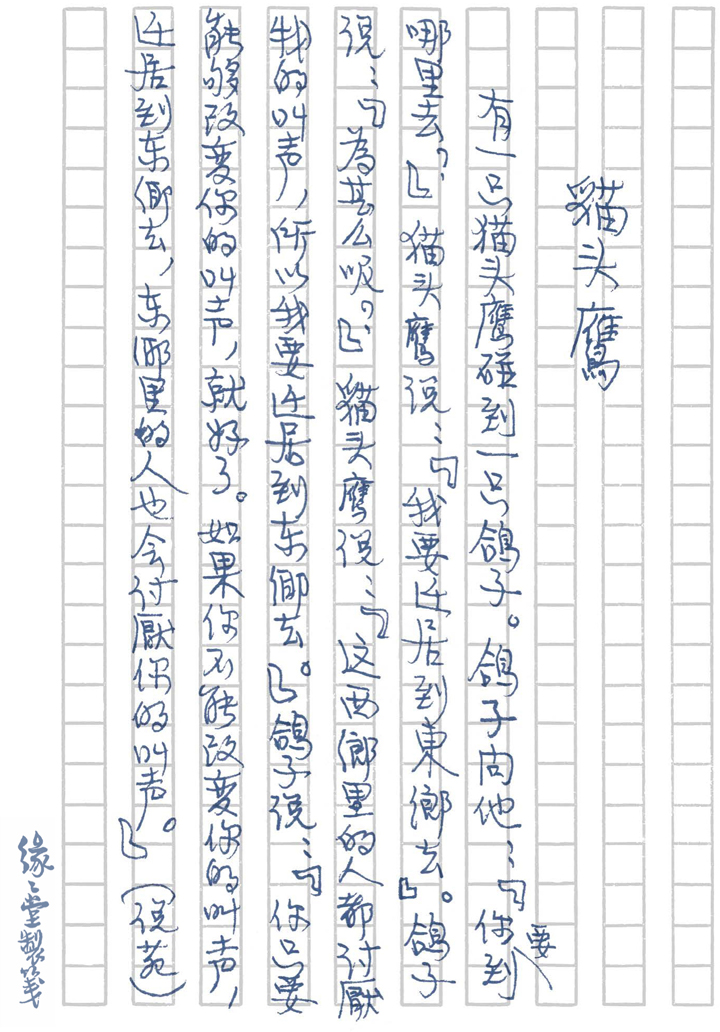 貓头鹰
有一只猫头鹰碰到一只鴿子。鴿子问他：「你要到
哪里去？」猫头鹰说：「我要迁居到東鄉去」。鴿子
说：「為甚么呢？」貓头鹰说：「这西鄉里的人都讨厭
我的叫声，所以我要迁居到东鄉去。」鴿子说：「你只要
能够改变你的叫声，就好了。如果你不能改变你的叫声，
迁居到东鄉去，东鄉里的人也会讨厭你的叫声。」（说苑）
缘缘堂製笺